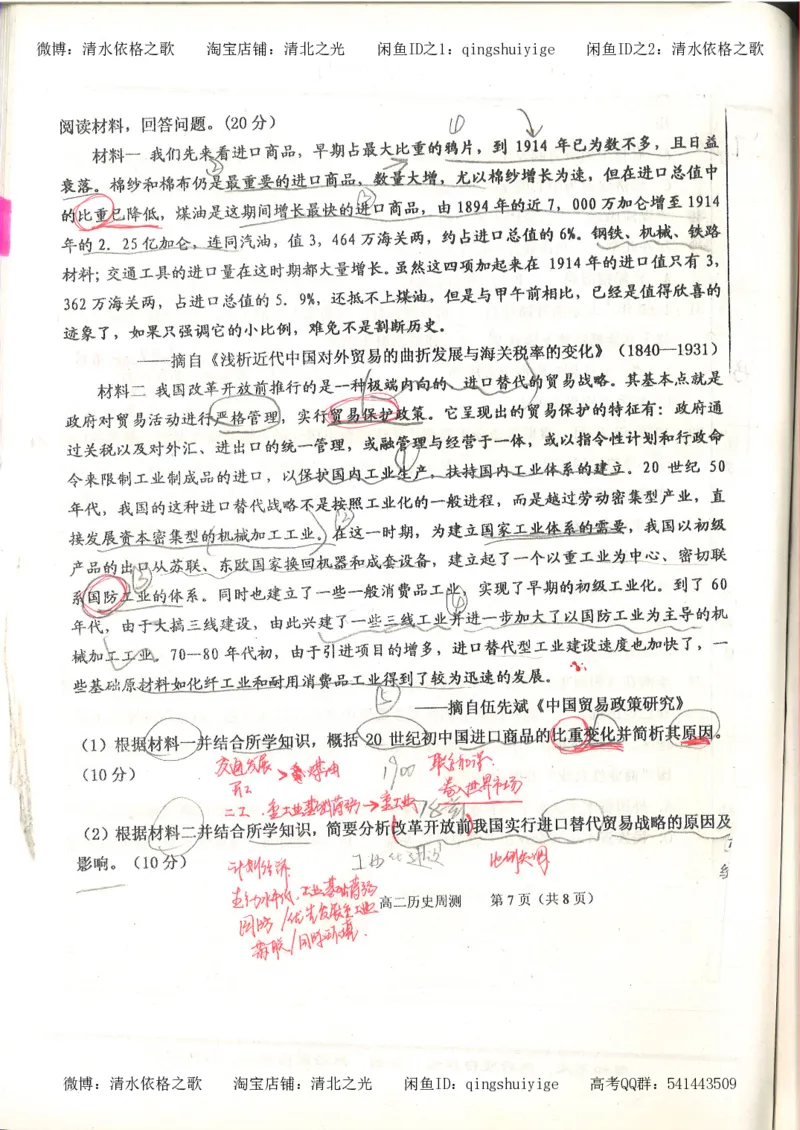 微博：清水依格之歌 淘宝店铺：清北之光 闲鱼ID之1：qingshuiyige 闲鱼ID之2：清水依格之歌
阅读材料，回答问题。(20分)
①
材料一 我们先来看进口商品，早期占最大比重的鸦片，到 1914 年已为数不多，且日益
衰落。棉纱和棉布仍是最重要的进口商品，数量大增，尤以棉纱增长为速，但在进口总值中
的比重已降低，煤油是这期间增长最快的进口商品，由 1894 年的近 7，000 万加仑增至 1914
年的 2．25 亿加仑，连同汽油，值 3，464 万海关两，约占进口总值的 6%。钢铁、机械、铁路
材料；交通工具的进口量在这时期都大量增长。虽然这四项加起来在 1914 年的进口值只有 3，
362 万海关两，占进口总值的 5．9%，还抵不上煤油，但是与甲午前相比，已经是值得欣喜的
迹象了，如果只强调它的小比例，难免不是割断历史。
——摘自《浅析近代中国对外贸易的曲折发展与海关税率的变化》（1840—1931）
材料二 我国改革开放前推行的是一种极端内向的、进口替代的贸易战略。其基本点就是
政府对贸易活动进行严格管理，实行贸易保护政策。它呈现出的贸易保护的特征有：政府通
过关税以及对外汇、进出口的统一管理，或融管理与经营于一体，或以指令性计划和行政命
令来限制工业制成品的进口，以保护国内工业生产，扶持国内工业体系的建立。20 世纪 50
年代，我国的这种进口替代战略不是按照工业化的一般进程，而是越过劳动密集型产业，直
接发展资本密集型的机械加工工业。在这一时期，为建立国家工业体系的需要，我国以初级
产品的出口从苏联、东欧国家换回机器和成套设备，建立起了一个以重工业为中心、密切联
系国防工业的体系。同时也建立了一些一般消费品工业，实现了早期的初级工业化。到了 60
年代，由于大搞三线建设，由此兴建了一些三线工业并进一步加大了以国防工业为主导的机
械加工工业。70—80 年代初，由于引进项目的增多，进口替代型工业建设速度也加快了，一
些基础原材料如化纤工业和耐用消费品工业得到了较为迅速的发展。
——摘自伍先斌《中国贸易政策研究》
（1）根据材料一并结合所学知识，概括 20 世纪初中国进口商品的比重变化并简析其原因。
（10 分）
交通发展 煤油 1900
卷入世界市场
二工 重工业基础薄弱→重工业
（2）根据材料二并结合所学知识，简要分析改革开放前我国实行进口替代贸易战略的原因及
影响。（10 分）
计划经济 工业化建设
工业基础薄弱
国防/优先发展重工业
苏联/国际环境.
高二历史周测 第 7 页（共 8 页）
微博：清水依格之歌 淘宝店铺：清北之光 闲鱼ID：qingshuiyige 高考QQ群：541443509